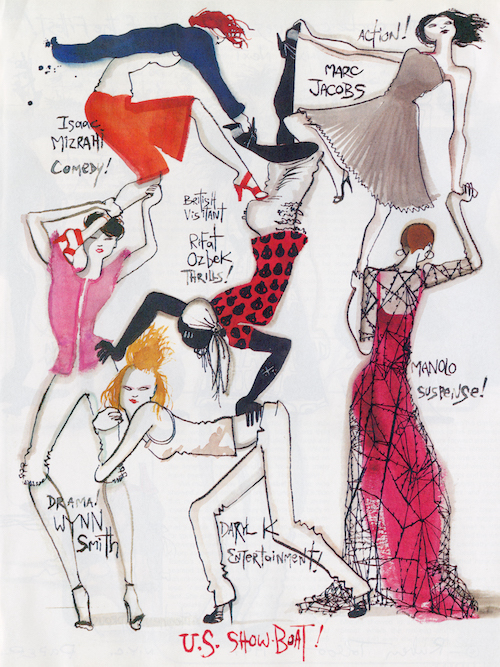 ACTION!
MARC
JACOBS
Isaac
MIZRAHI
COMEDY!
BRITISH
VISITANT
RIFAT
OZBEK
THRILLS!
MANOLO
SUSPENSE!
DRAMA.
WYNN
Smith
DARYL K
ENTERTAINMENT!
U.S. SHOW-BOAT!